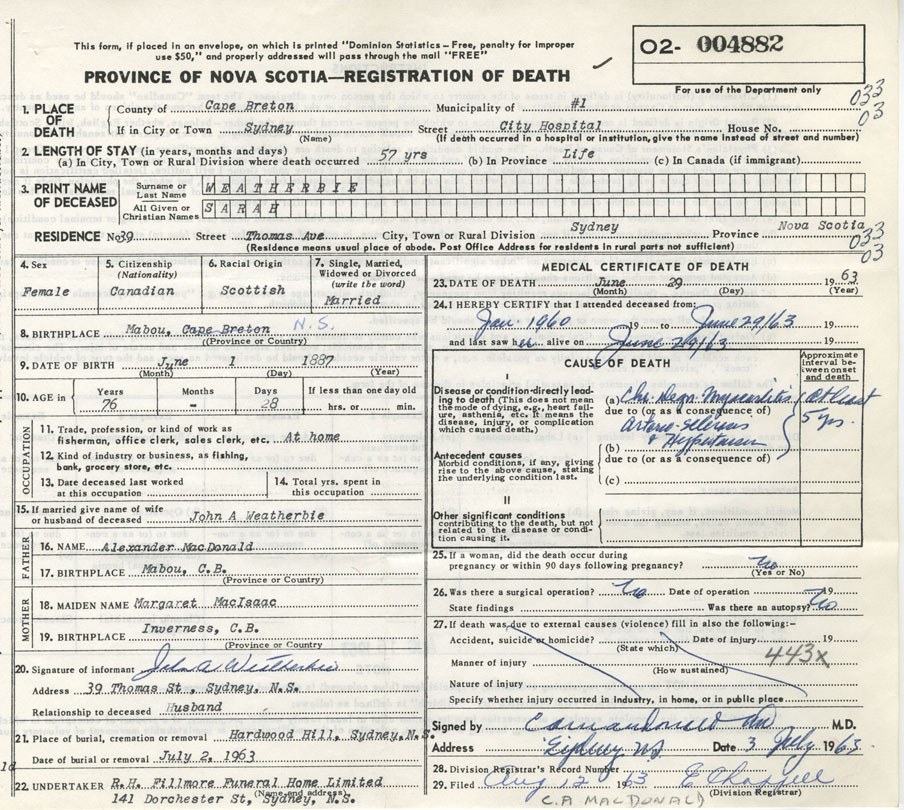 This form, if placed in an envelope, on which is printed "Dominion Statistics – Free, penalty for improper
use $50," and properly addressed will pass through the mail "FREE"
O2- 004882
PROVINCE OF NOVA SCOTIA—REGISTRATION OF DEATH
For use of the Department only
033
03
1. PLACE OF DEATH
County of Cape Breton Municipality of #1
If in City or Town Sydney Street City Hospital House No.
(Name) (If death occurred in hospital or institution, give the name instead of street and number)
2. LENGTH OF STAY (in years, months and days)
(a) In City, Town or Rural Division where death occurred 57 yrs (b) In Province Life (c) In Canada (if immigrant)
3. PRINT NAME OF DECEASED
Surname or Last Name WEATHERBIE
All Given or Christian Names SARAH
RESIDENCE No. 39 Street Thomas Ave City, Town or Rural Division Sydney Province Nova Scotia
(Residence means usual place of abode. Post Office Address for residents in rural parts not sufficient)
033
03
4. Sex
Female
5. Citizenship
(Nationality)
Canadian
6. Racial Origin
Scottish
7. Single, Married,
Widowed or Divorced
(write the word)
Married
8. BIRTHPLACE Mabou, Cape Breton N.S.
(Province or Country)
9. DATE OF BIRTH June 1 1887
(Month) (Day) (Year)
10. AGE in
Years 76
Months -
Days 28
If less than one day old
hrs. or min.
OCCUPATION
11. Trade, profession, or kind of work as
fisherman, office clerk, sales clerk, etc. At home
12. Kind of industry or business, as fishing,
bank, grocery store, etc.
13. Date deceased last worked
at this occupation
14. Total yrs. spent in
this occupation
15. If married give name of wife
or husband of deceased John A Weatherbie
FATHER
16. NAME Alexander MacDonald
17. BIRTHPLACE Mabou, C.B.
(Province or Country)
MOTHER
18. MAIDEN NAME Margaret MacIsaac
19. BIRTHPLACE Inverness, C.B.
(Province or Country)
20. Signature of informant John A Weatherbie
Address 39 Thomas St, Sydney, N.S.
Relationship to deceased Husband
21. Place of burial, cremation or removal Hardwood Hill, Sydney, N.S.
Date of burial or removal July 2, 1963
22. UNDERTAKER R.H. Fillmore Funeral Home Limited
(Name and address)
141 Dorchester St, Sydney, N.S.
MEDICAL CERTIFICATE OF DEATH
23. DATE OF DEATH June 29 1963
(Month) (Day) (Year)
24. I HEREBY CERTIFY that I attended deceased from:
Jan 1960 19 to June 29/63 19
and last saw her alive on June 29/63 19
CAUSE OF DEATH
Approximate
interval be-
tween onset
and death
I
Disease or condition directly lead-
ing to death (This does not mean
the mode of dying, e.g., heart fail-
ure, asthenia, etc. It means the
disease, injury, or complication
which caused death.)
(a) Chr. Degn. Myocarditis
due to (or as a consequence of)
Arterio-sclerosis
& Hypertension
at least
5 yrs.
Antecedent causes
Morbid conditions, if any, giving
rise to the above cause, stating
the underlying condition last.
(b)
due to (or as a consequence of)
(c)
II
Other significant conditions
contributing to the death, but not
related to the disease or condi-
tion causing it.
25. If a woman, did the death occur during
pregnancy or within 90 days following pregnancy? No
(Yes or No)
26. Was there a surgical operation? No Date of operation 19
State findings Was there an autopsy? No
27. If death was due to external causes (violence) fill in also the following:–
Accident, suicide or homicide? Date of injury 19
(State which)
443x
Manner of injury
(How sustained)
Nature of injury
Specify whether injury occurred in industry, in home, or in public place
Signed by M.D.
Address Sydney NS Date 3 July 1963
28. Division Registrar's Record Number
29. Filed Aug 12 1963
(Division Registrar)
C.A. MACDONALD